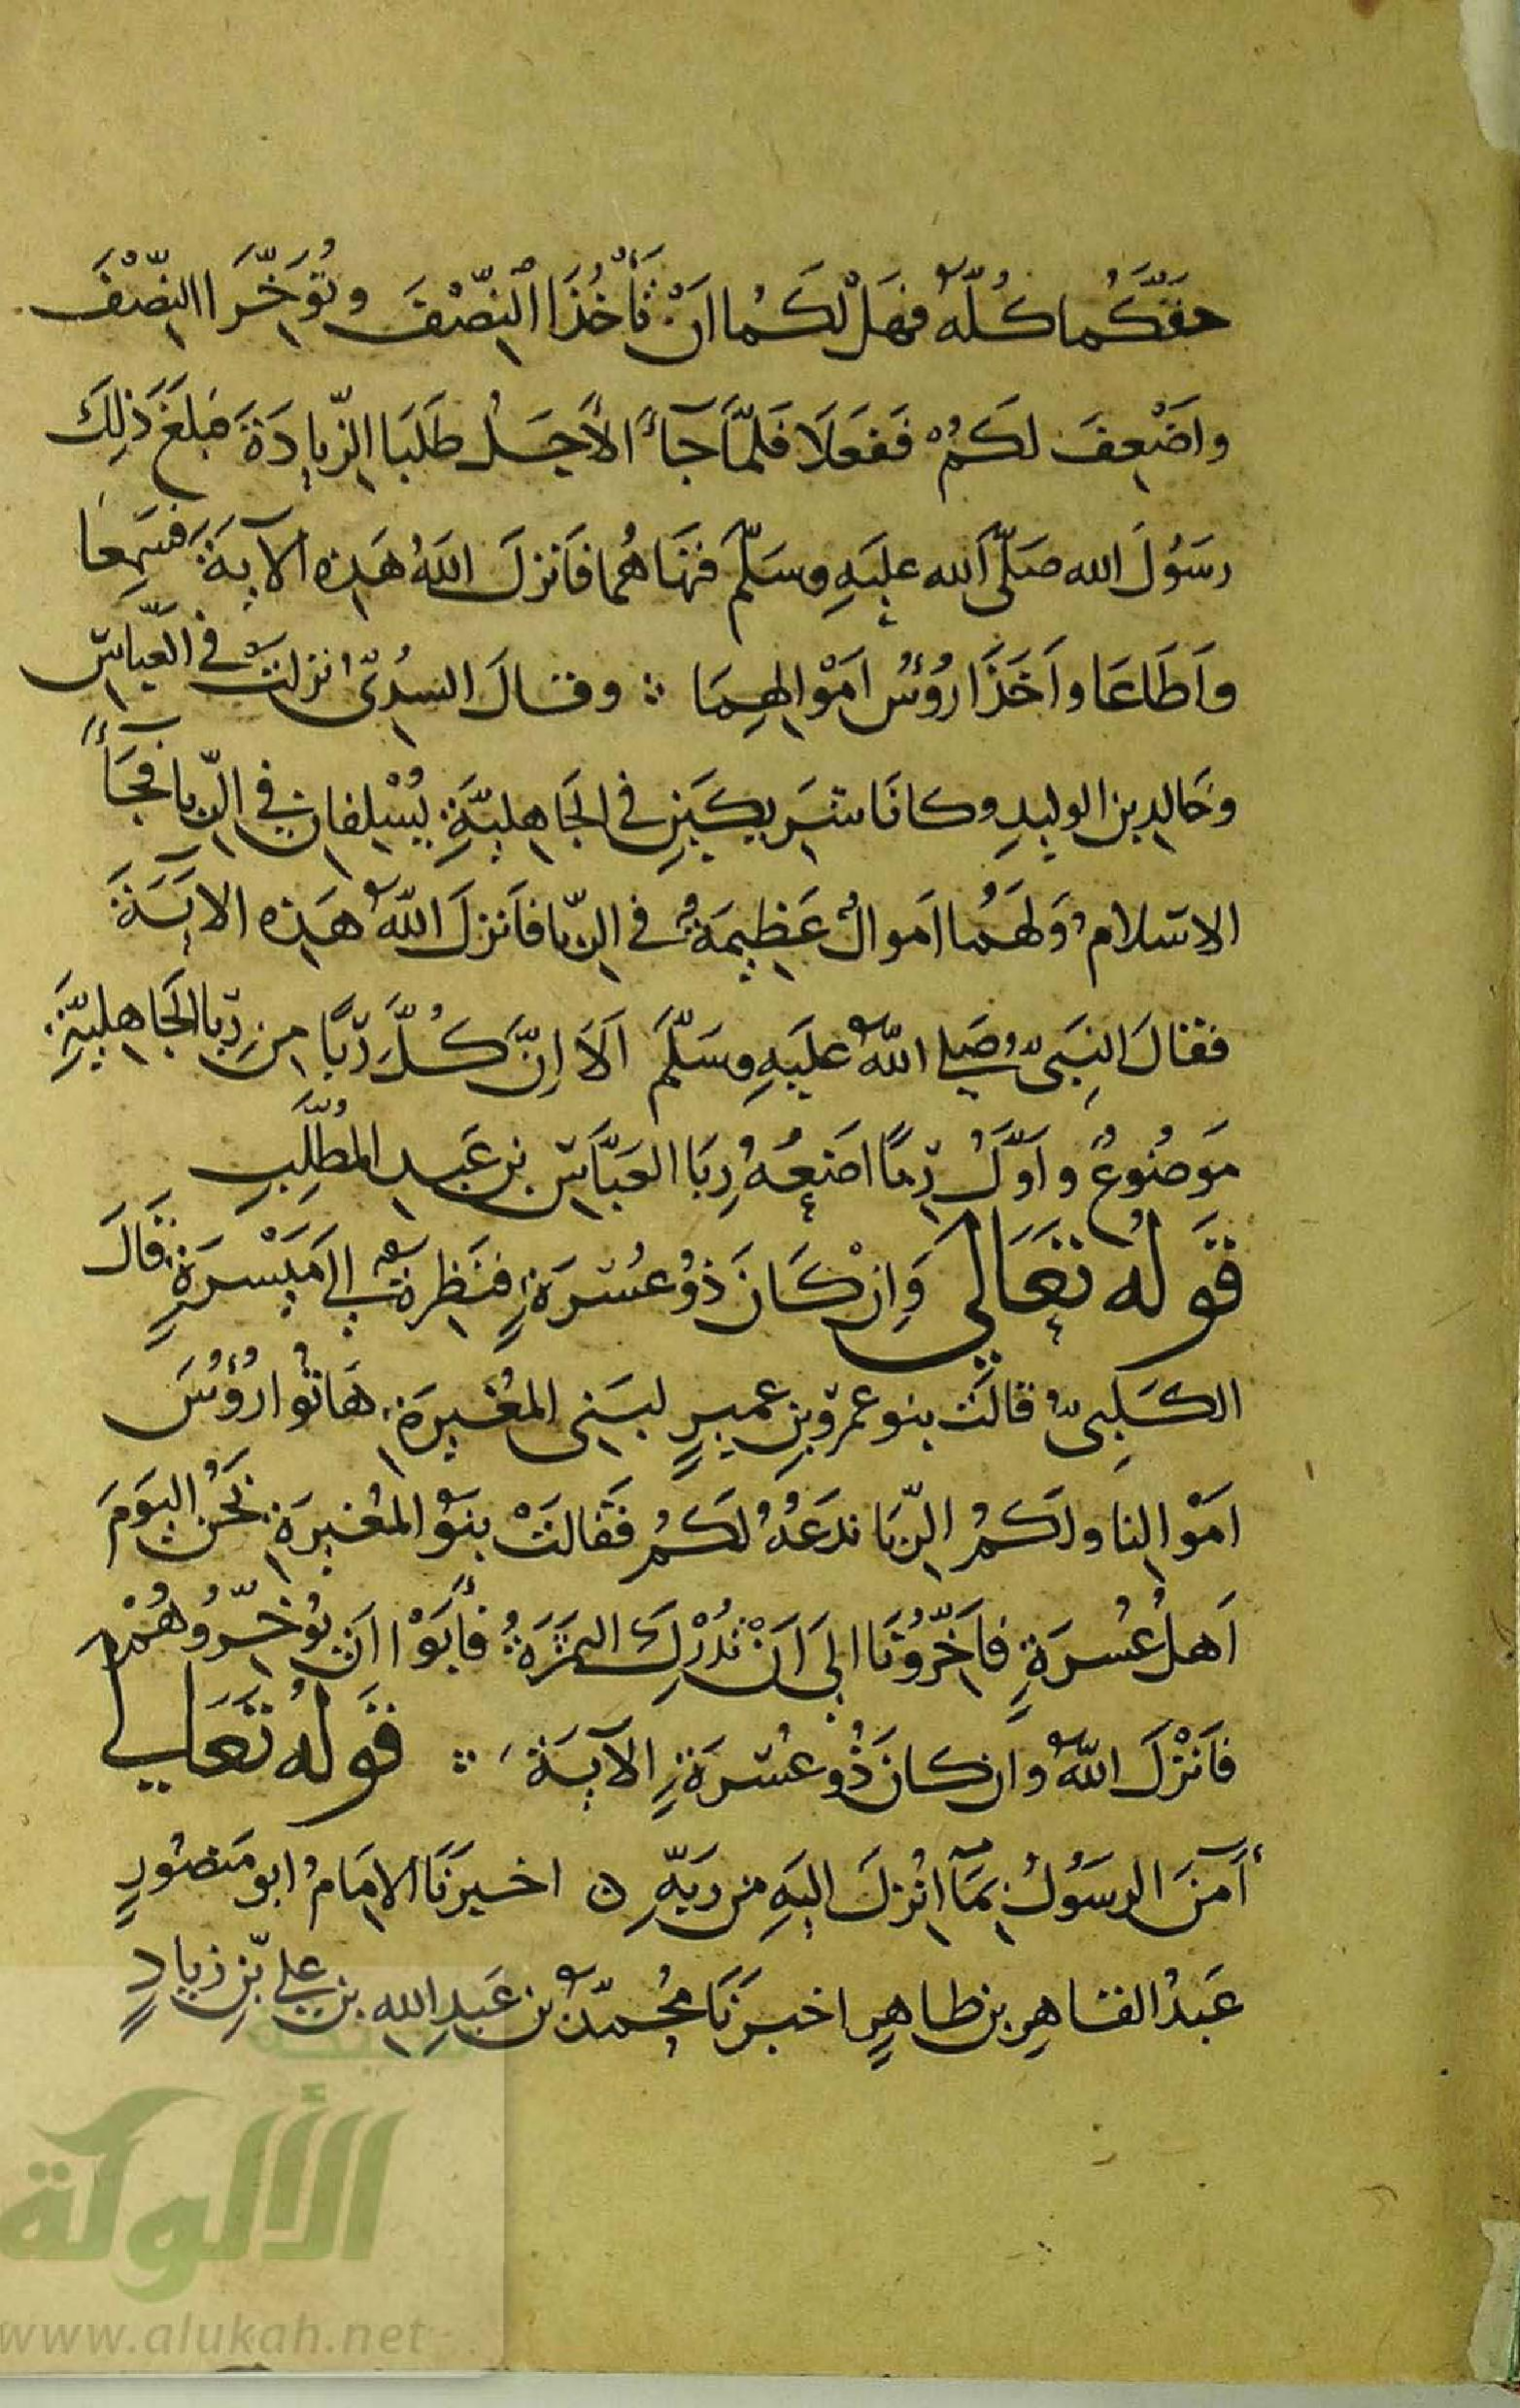 حَقَّكُما كُلَّهُ فهَلْ لكَمُا انْ تَأْخُذَا النِّصْفَ وتُؤَخِّرَا النِّصْفَ
واَضْعِفَ لكَمُْ ففعَلَا فَلَمَّا جَآءَ الأَجَلُ طَلَبَا الزّيادَةَ فبَلَغَ ذَلِكَ
رسَوُلَ الله صَلَّى الله عليَهِ وسَلَّم فنهَاهُما فاَنزلَ اللهُ هَذِه الآيةَ فسَمِعَا
واَطَاعَا واَخَذَا رُؤُسَ امَوْالِهِمَا ؞ وقالَ السُدِّىُّ نزلتْ فى العبّاسِ
وخَالدِ بن الوليدِ وكانَا شَريكَيَنِ فى الجَاهِليَّةِ يُسْلِفانِ فى الرِّبا فجَآءَ
الاسلامُ ولَهُما اَموالٌ عَظِيمَةٌ فى الرّبا فاَنزلَ اللّهُ هَذه الايَةَ
فقالَ النبَىُّ صَلى اللّهُ عليَهِ وسَلّمَ اَلَا اِنَّ كُلَّ رِبًا مِن رِبَا الجَاهِليَّةِ
مَوضُوعٌ واَوّلُ رِبًا اضَعُهُ رِبَا العبَّاسِ بن عَبد المُطَّلِبِ
قَولُهُ تعَالَى وَاِنْ كَانَ ذوُ عُسْرَةٍ فنَظِرةٌ الى مَيْسَرَةٍ قَالَ
الكَلبِىُّ قالَتْ بنو عمرو بنِ عميرٍ لبَنِى المغُيرَةِ هَاتوُا رُؤُسَ
امَوْالِنا ولكَمُ الرِّبَا ندَعَهُ لكَمُ فقَالتْ بنوُ المغُيرَةِ نَحْنُ اليَومَ
اَهلُ عُسرَةٍ فاَخِّرُونَا الى اَنْ تُدْرِكَ الثمَرَةُ فأبَوْا انَ يُؤخِّرُوهُمْ
فاَنْزلَ اللّهُ واِن كانَ ذُو عُسْرَةٍ الآيةَ ؞ قَولُهُ تعَالى
آمَنَ الرسَوُلُ بمَآ انُزلَ اليَهِ من رَبِّهِ ن اخبرَنَا الامَامُ ابو مَنصُورٍ
عَبدُ القاهِرِ بن طاهِرٍ اخبرَنَا مُحمدُّ بن عَبدِ الله بن علىّ بنِ زيادٍ
شبكة
الألوكة
www.alukah.net